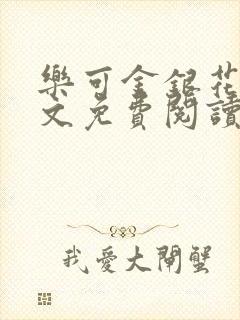 樂可金銀花
文免費閱讀
我愛大閘蟹